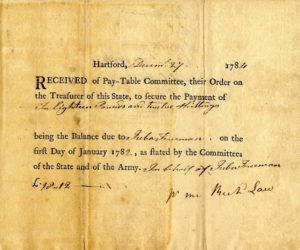 Hartford, Decemr 27 1784
RECEIVED of Pay-Table Committee, their Order on
the Treasurer of this State, to secure the Payment of
Eighteen Pounds and twelve Shillings
being the Balance due to Freeman on the
first Day of January 1782, as stated by the Committees
of the State and of the Army. In behalf of Freeman
£18-12
Law